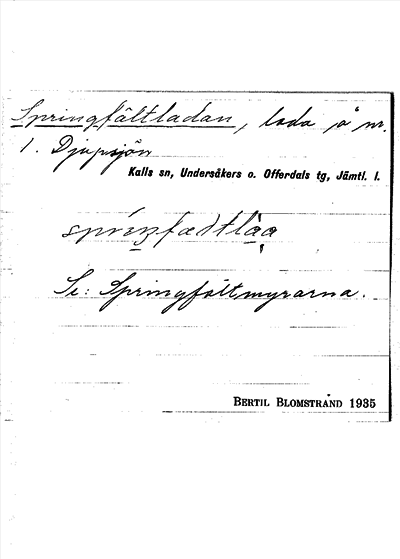 Springfältladan, lada å nr.
1. Djupsjön
Kalls sn, Undersåkers o. Offerdals tg, Jämtl. l.
Se: Springfältmyrarna.
BERTIL BLOMSTRAND 1935